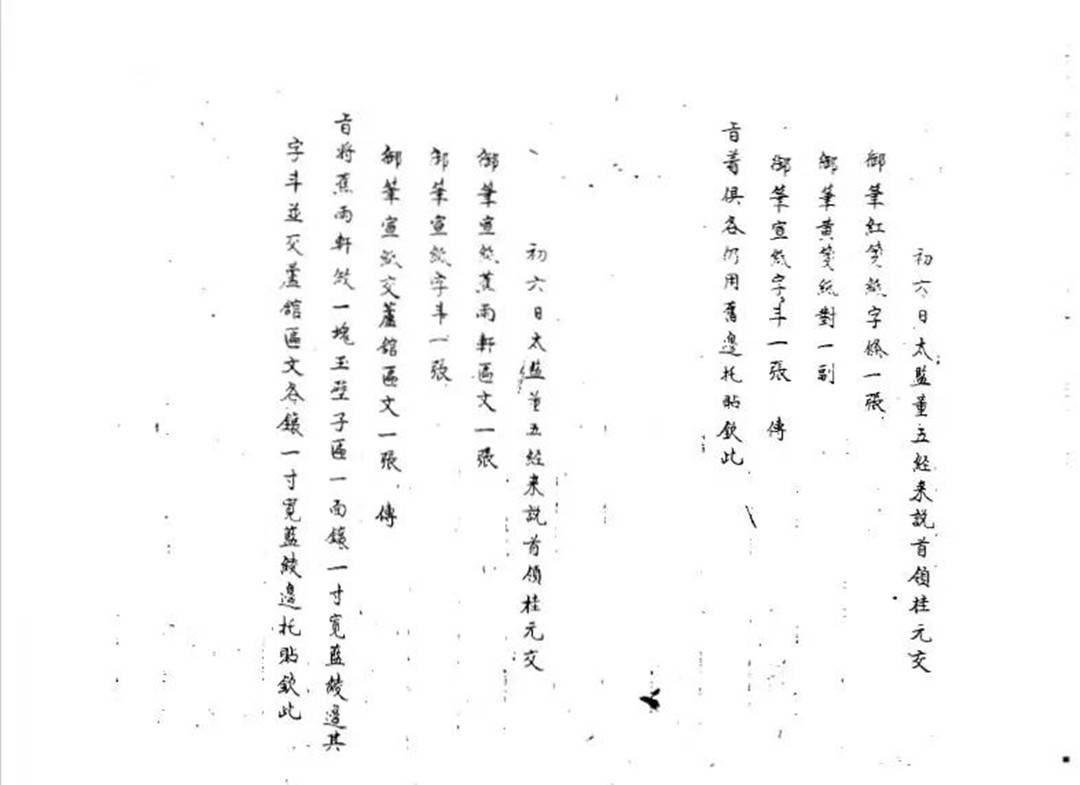 初六日太監董五經来説首領桂元交
御筆紅箋紙字條一張
御筆黃箋紙對一副
御筆宣紙字斗一張　傳
旨着俱各仍用舊邊托貼欽此
初六日太監董五經来説首領桂元交
御筆宣紙蕉雨軒匾文一張
御筆宣紙字斗一張
御筆宣紙交蘆舘匾文一張　傳
旨將蕉雨軒做一塊玉壁子匾一面鑲一寸寬藍綾邊其
字斗並交蘆舘匾文各鑲一寸寬藍綾邊托貼欽此